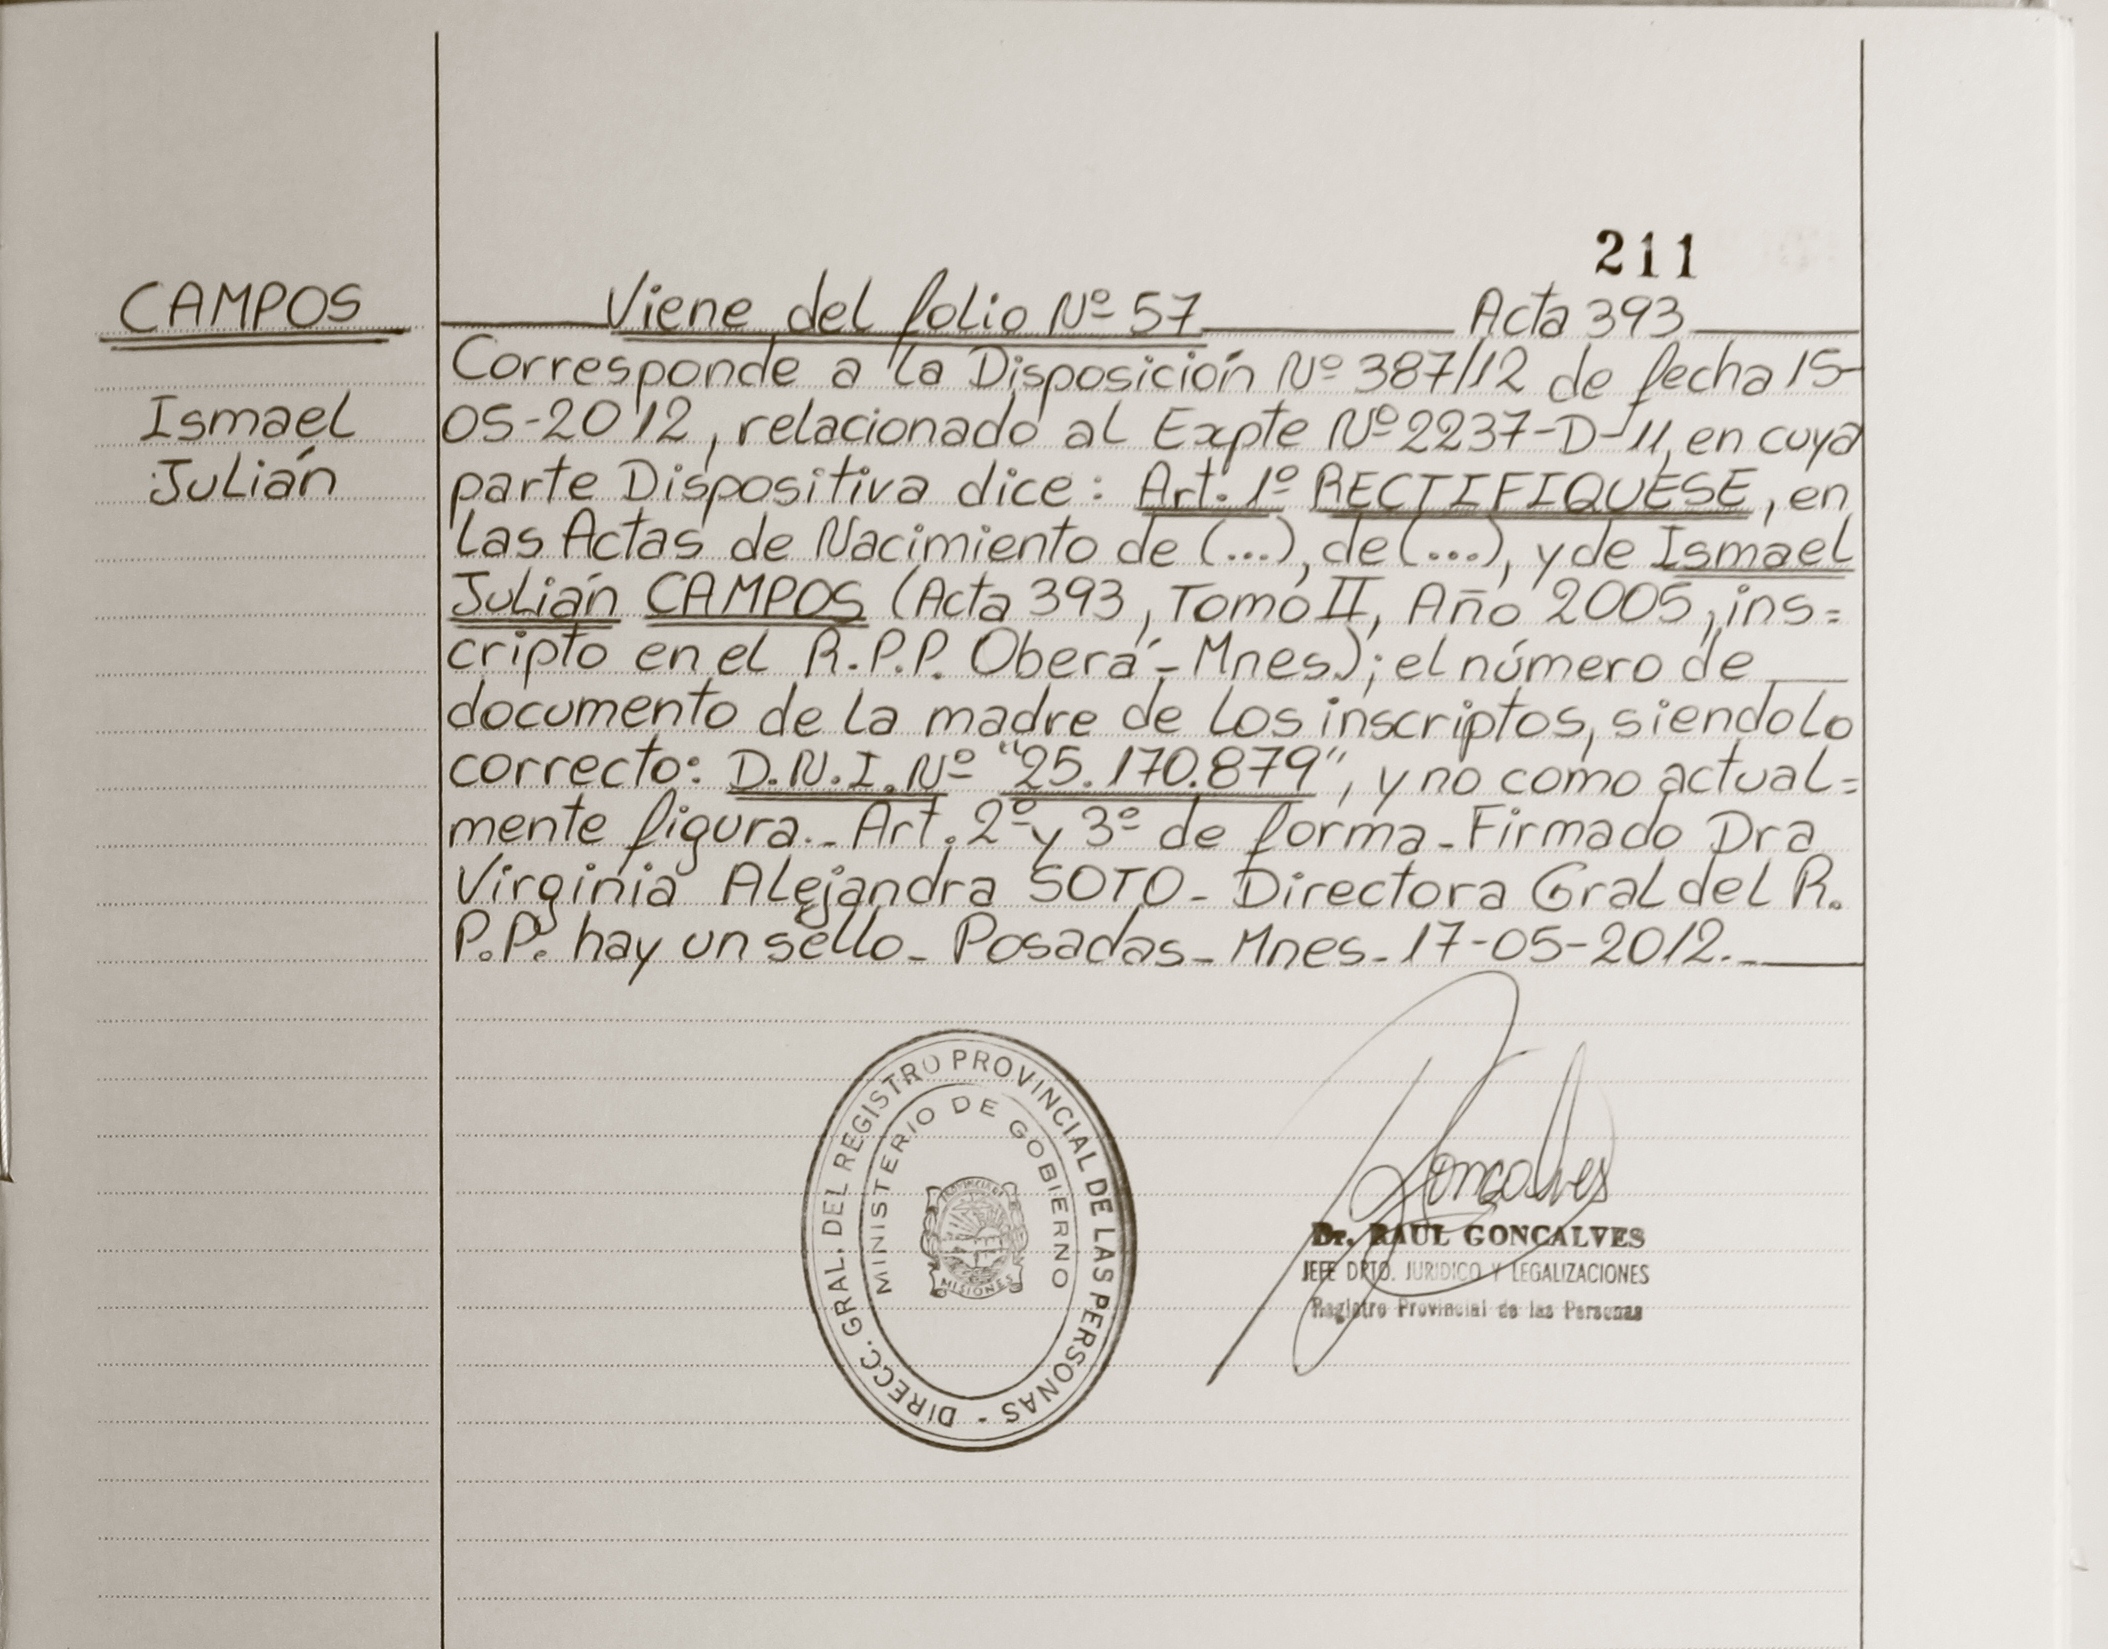 211
CAMPOS
Ismael
Julián
Viene del folio Nº 57 Acta 393
Corresponde a la Disposición Nº 387/12 de fecha 15-
05-2012, relacionado al Expte Nº 2237-D-11, en cuya
parte Dispositiva dice: Art. 1º RECTIFIQUESE, en
las Actas de Nacimiento de (...), de (...), y de Ismael
Julián CAMPOS (Acta 393, Tomo II, Año 2005, ins=
cripto en el R.P.P. Oberá - Mnes.); el número de
documento de la madre de los inscriptos, siendo lo
correcto: D.N.I. Nº "25.170.879", y no como actual=
mente figura.- Art. 2º y 3º de forma - Firmado Dra
Virginia Alejandra SOTO - Directora Gral del R.
P.P. hay un sello - Posadas - Mnes - 17-05-2012.-
DIRECC. GRAL. DEL REGISTRO PROVINCIAL DE LAS PERSONAS -
MINISTERIO DE GOBIERNO
PROVINCIA DE
MISIONES
Goncalves
Dr. RAUL GONCALVES
JEFE DPTO. JURIDICO Y LEGALIZACIONES
Registro Provincial de las Personas